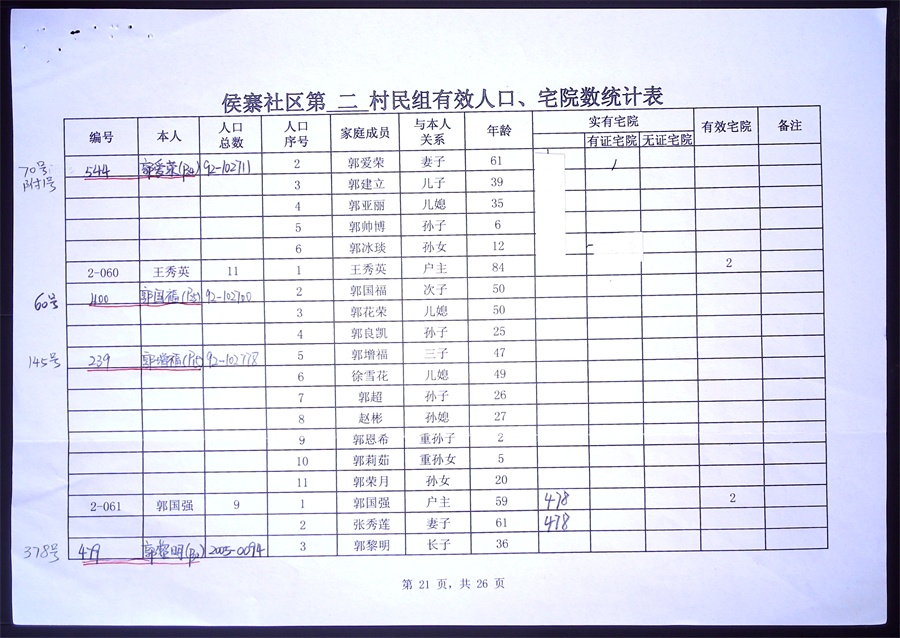 侯寨社区第 二 村民组有效人口、宅院数统计表
编号 本人 人口总数 人口序号 家庭成员 与本人关系 年龄 实有宅院 有证宅院 无证宅院 有效宅院 备注
70号附1号 544 郭爱荣 92-102711 2 郭爱荣 妻子 61
3 郭建立 儿子 39
4 郭亚丽 儿媳 35
5 郭帅博 孙子 6
6 郭冰琰 孙女 12
2-060 王秀英 11 1 王秀英 户主 84 2
60号 400 郭国福 92-102700 2 郭国福 次子 50
3 郭花荣 儿媳 50
4 郭良凯 孙子 25
145号 239 郭增福 92-102778 5 郭增福 三子 47
6 徐雪花 儿媳 49
7 郭超 孙子 26
8 赵彬 孙媳 27
9 郭恩希 重孙子 2
10 郭莉茹 重孙女 5
11 郭荣月 孙女 20
2-061 郭国强 9 1 郭国强 户主 59 478 2
2 张秀莲 妻子 61 478
378号 479 郭黎明 2005-0094 3 郭黎明 长子 36
第 21 页，共 26 页